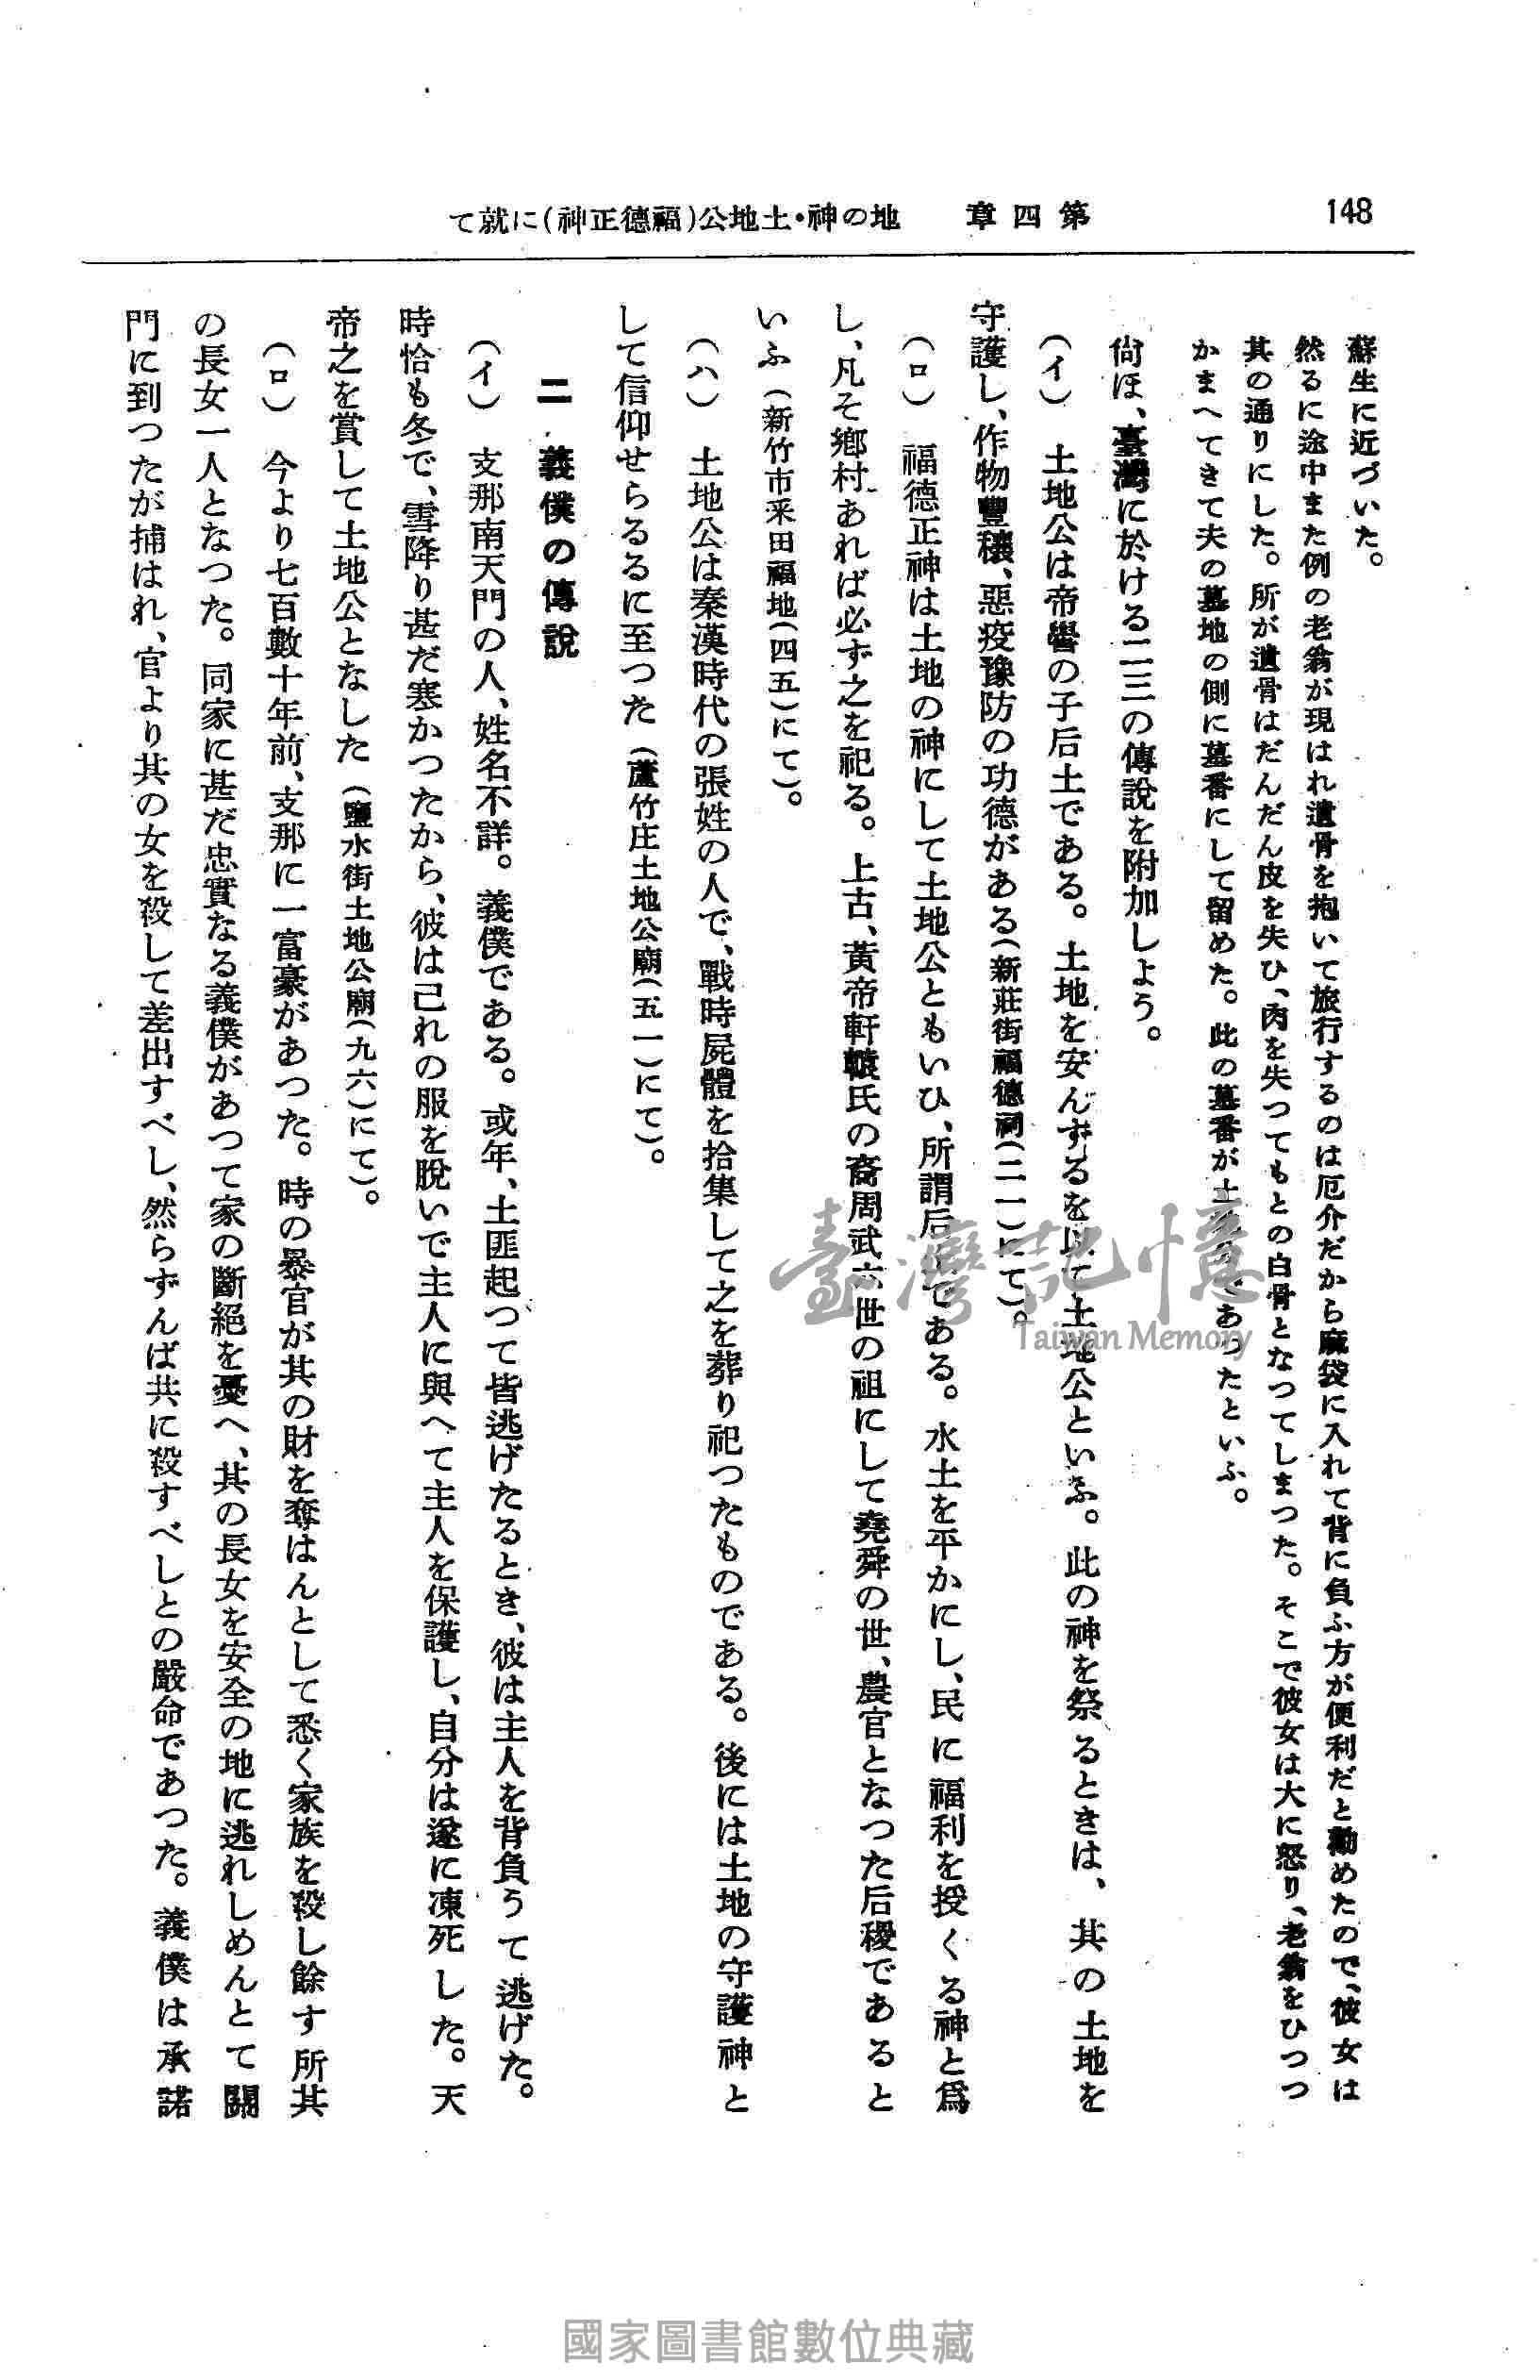 148
第四章　地の神・土地公(福德正神)に就て
蘇生に近づいた。
然るに途中また例の老翁が現はれ遺骨を抱いて旅行するのは厄介だから麻袋に入れて背に負ふ方が便利だと勸めたので、彼女は
其の通りにした。所が遺骨はだんだん皮を失ひ、肉を失つてもとの白骨となつてしまつた。そこで彼女は大に怒り、老翁をひつつ
かまへてきて夫の墓地の側に墓番にして留めた。此の墓番が土であつたといふ。
尙ほ、臺灣に於ける二三の傳說を附加しよう。
(イ)　土地公は帝嚳の子后土である。土地を安んずるを以て土地公といふ。此の神を祭るときは、其の土地を
守護し、作物豐穰、惡疫豫防の功德がある(新莊街福德祠(二一)にて)。
(ロ)　福德正神は土地の神にして土地公ともいひ、所謂后である。水土を平かにし、民に福利を授くる神と爲
し、凡そ鄕村あれば必ず之を祀る。上古、黃帝軒轅氏の裔周武六世の祖にして堯舜の世、農官となつた后稷であると
いふ(新竹市釆田福地(四五)にて)。
(ハ)　土地公は秦漢時代の張姓の人で、戰時屍體を拾集して之を葬り祀つたものである。後には土地の守護神と
して信仰せらるるに至つた(蘆竹庄土地公廟(五一)にて)。
二　義僕の傳說
(イ)　支那南天門の人、姓名不詳。義僕である。或年、土匪起つて皆逃げたるとき、彼は主人を背負うて逃げた。
時恰も冬で、雪降り甚だ寒かつたから、彼は己れの服を脫いで主人に與へて主人を保護し、自分は遂に凍死した。天
帝之を賞して土地公となした(鹽水街土地公廟(九六)にて)。
(ロ)　今より七百數十年前、支那に一富豪があつた。時の暴官が其の財を奪はんとして悉く家族を殺し餘す所其
の長女一人となつた。同家に甚だ忠實なる義僕があつて家の斷絕を憂へ、其の長女を安全の地に逃れしめんとて關
門に到つたが捕はれ、官より其の女を殺して差出すべし、然らずんば共に殺すべしとの嚴命であつた。義僕は承諾
臺灣記憶
Taiwan Memory
國家圖書館數位典藏